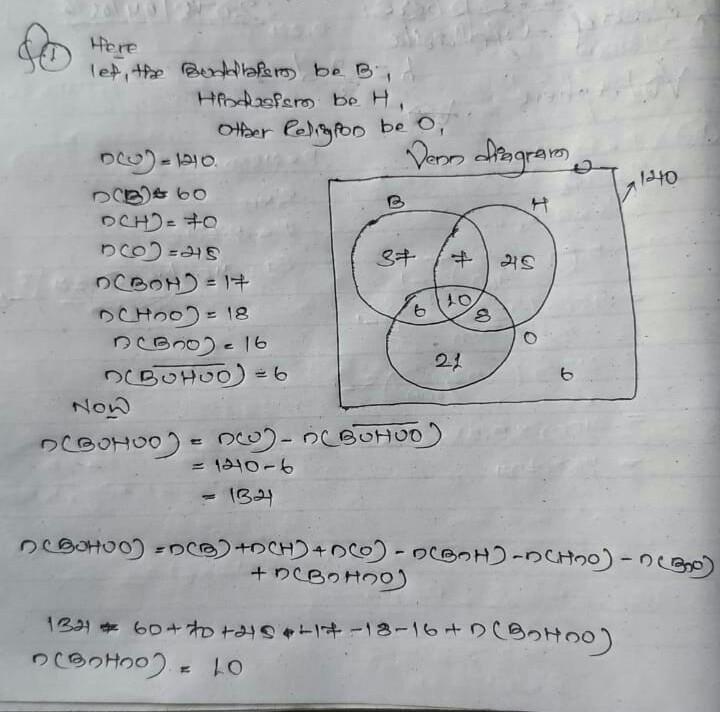 Q. 1 Here
let, the Buddhism be B,
Hinduism be H,
Other Religion be O,
n(U) = 140
n(B) = 60
n(H) = 70
n(O) = 45
n(B∩H) = 17
n(H∩O) = 18
n(B∩O) = 16
n(\overline{B∪H∪O}) = 6
Venn diagram
U
140
B
H
37
7
45
6
10
8
O
21
6
Now
n(B∪H∪O) = n(U) - n(\overline{B∪H∪O})
= 140 - 6
= 134
n(B∪H∪O) = n(B) + n(H) + n(O) - n(B∩H) - n(H∩O) - n(B∩O)
+ n(B∩H∩O)
134 = 60 + 70 + 45 - 17 - 18 - 16 + n(B∩H∩O)
n(B∩H∩O) = 10